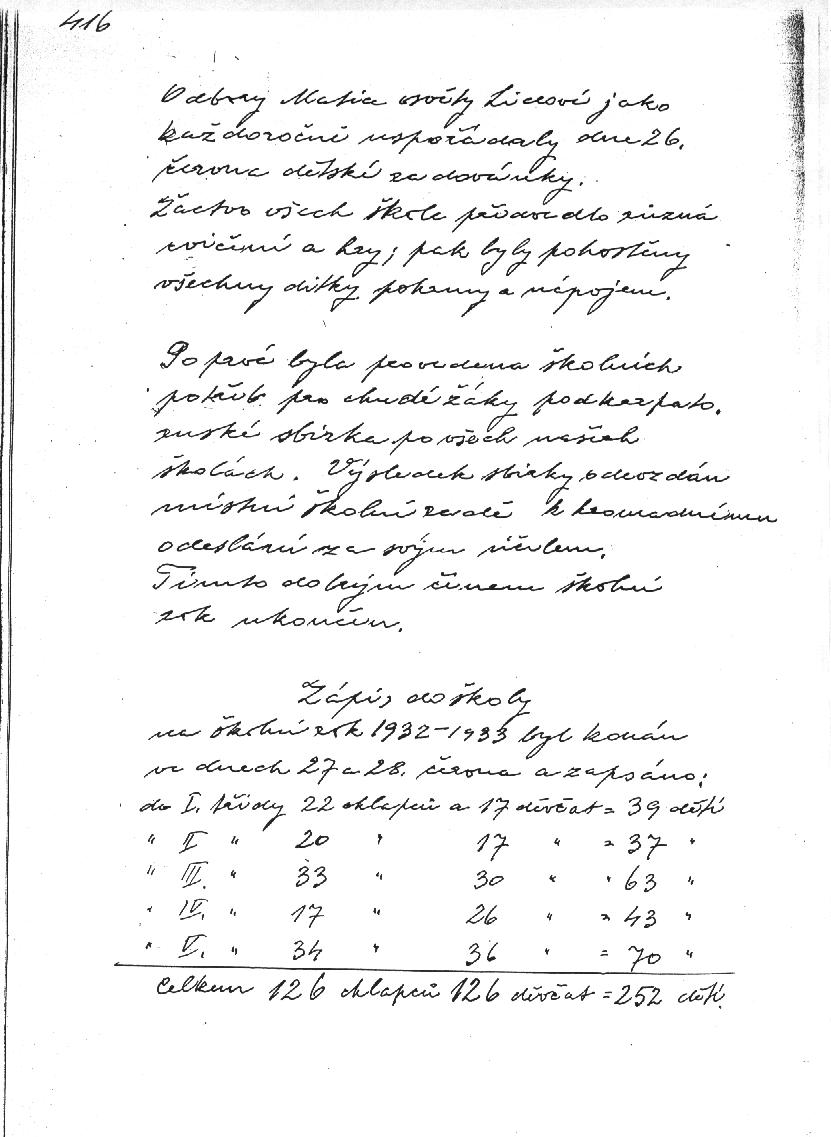 416
Odbory Matice osvěty Lidové jako
každoročně uspořádaly dne 26.
června dětské radovánky.
Žactvo všech škole předvedlo různá
cvičení a hry; pak byly pohostěny
všechny dítky pokrmy a nápojem.
Po prvé byla provedena školních
potřeb pro chudé žáky podkarpato.
ruské sbírka po všech našich
školách. Výsledek sbírky odevzdán
místní školní radě k hromadnému
odeslání za svým účelem.
Tímto dobrým činem školní
rok ukončen.
Zápis do školy
na školní rok 1932-1933 byl konán
ve dnech 27 a 28. června a zapsáno:
do I. třídy 22 chlapců a 17 děvčat = 39 dětí
" II " 20 " 17 " = 37 "
" III. " 33 " 30 " " 63 "
" IV. " 17 " 26 " = 43 "
" V. " 34 " 36 " = 70 "
Celkem 126 chlapců 126 děvčat = 252 dětí.